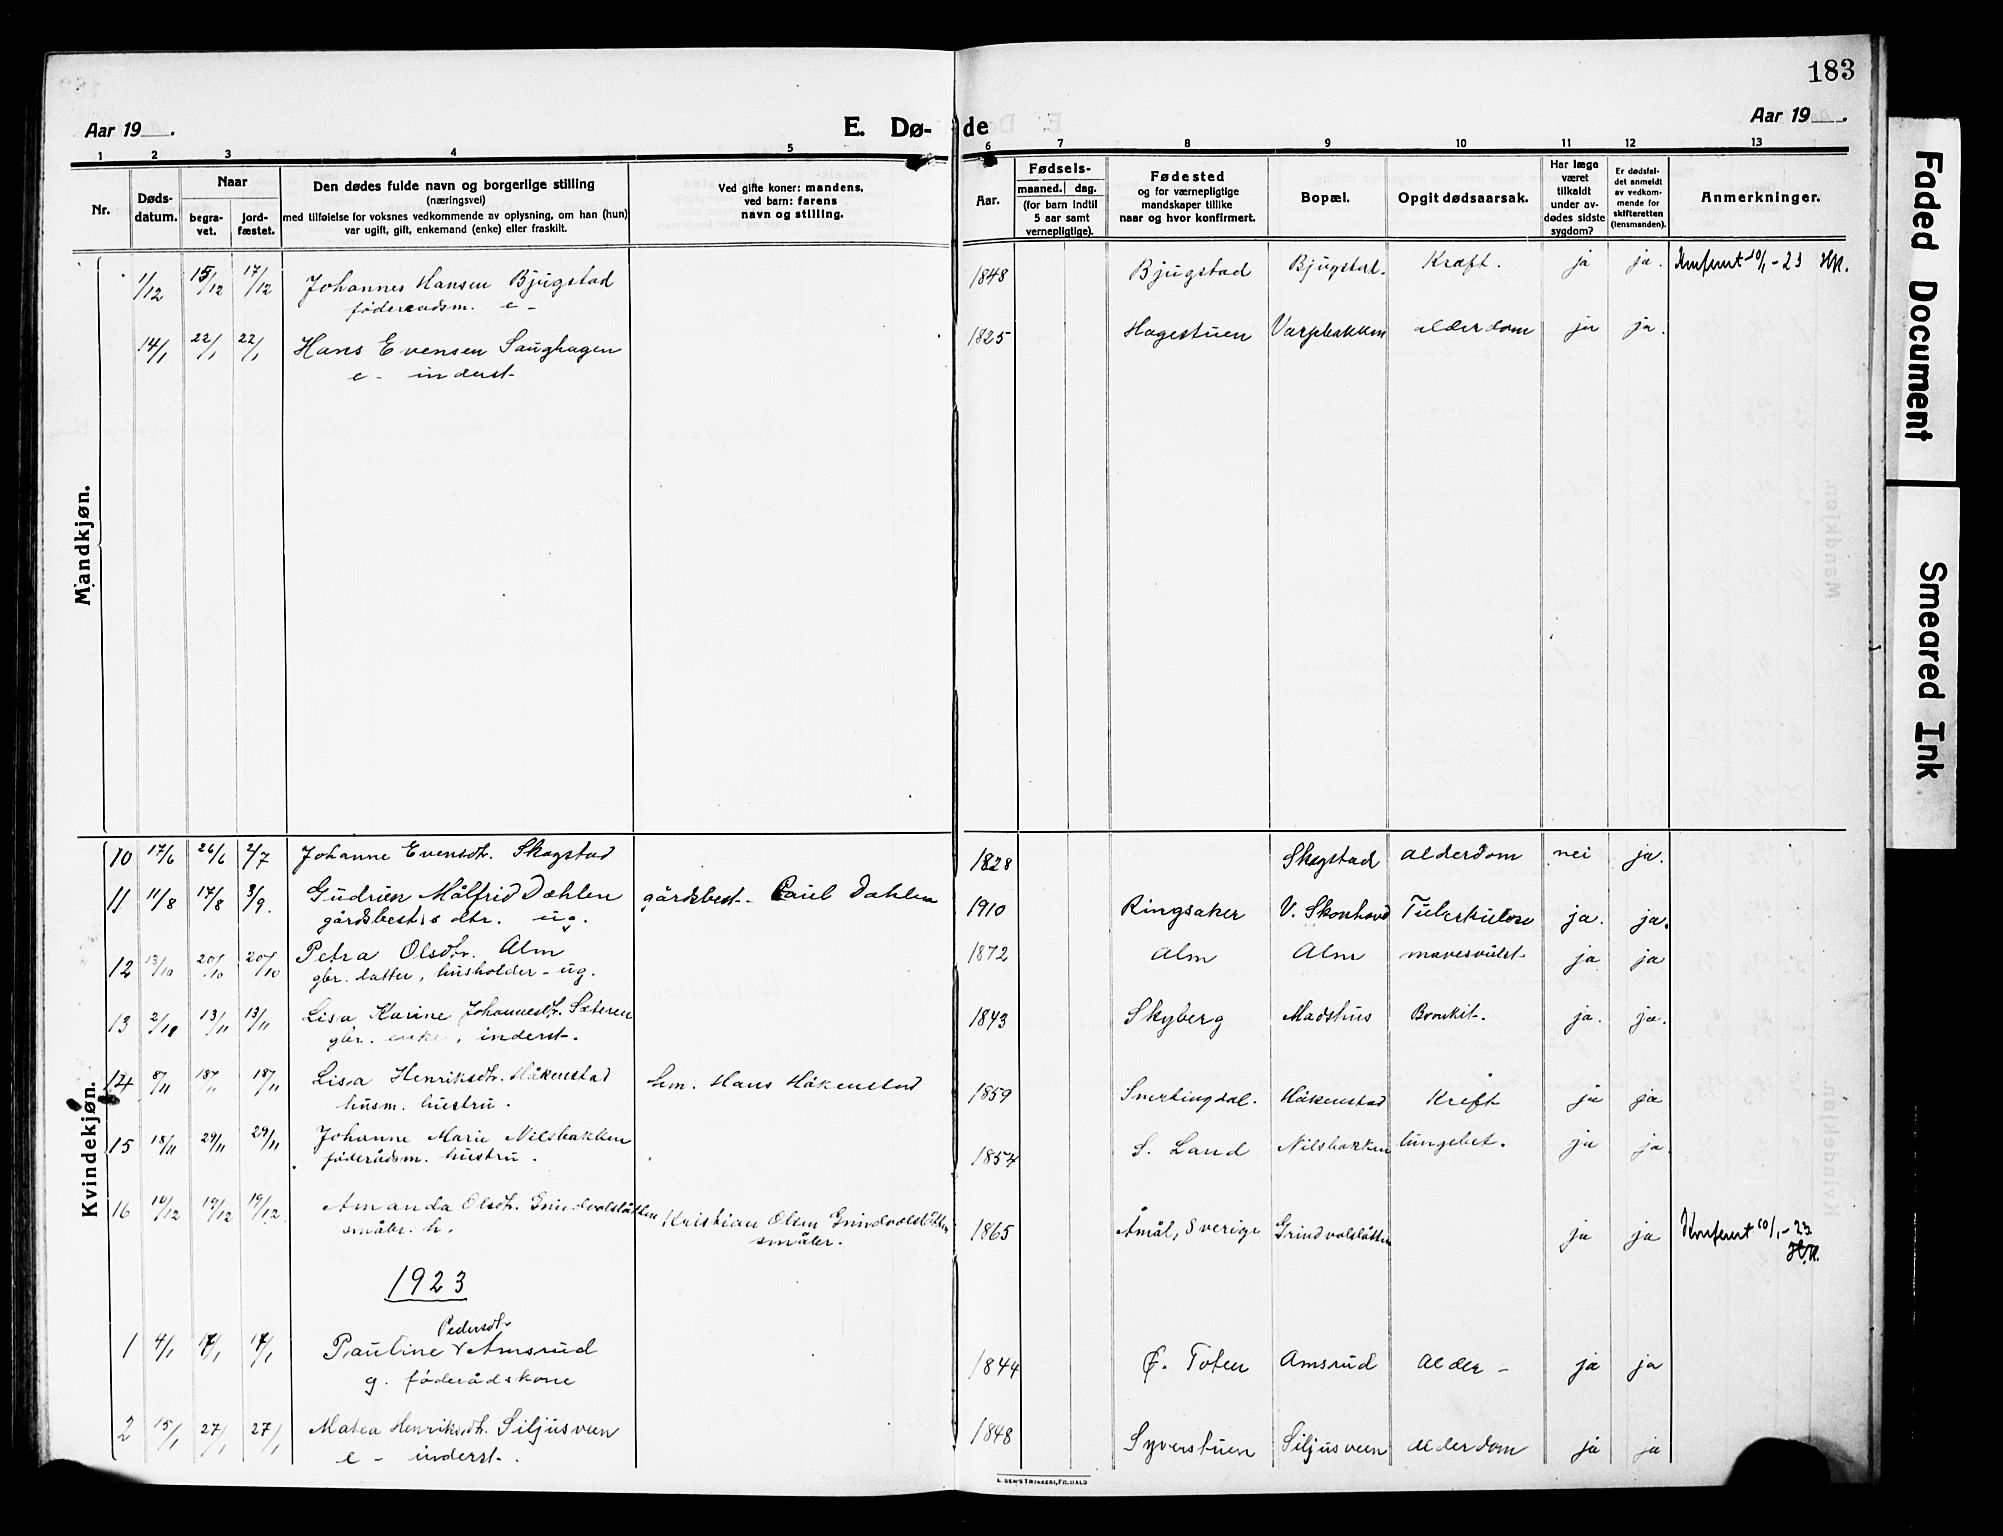 183
Aar 19 . E. Dø- de Aar 19 .
1 2 3 4 5 6 7 8 9 10 11 12 13
Nr.
Døds-
datum.
Naar
begra-
vet.
jord-
fæstet.
Den dødes fulde navn og borgerlige stilling
(næringsvei)
med tilføielse for voksnes vedkommende av oplysning, om han (hun)
var ugift, gift, enkemand (enke) eller fraskilt.
Ved gifte koner: mandens,
ved barn: farens
navn og stilling.
Aar.
Fødsels-
maaned. dag.
(for barn indtil
5 aar samt
vernepligtige).
Fødested
og for værnepligtige
mandskaper tillike
naar og hvor konfirmert.
Bopæl.
Opgit dødsaarsak.
Har læge
været
tilkaldt
under av-
dødes sidste
sygdom?
Er dødsfal-
det anmeldt
av vedkom-
mende for
skifteretten
(lensmanden).
Anmerkninger.
Mandkjøn.
1/12 15/12 17/12 Johannes Hansen Bjugstad 1848 Bjugstad Bjugstad. Kræft. ja ja. Konferert 10/1-23 HK.
föderaadsm. e-
14/1 22/1 22/1 Hans Evensen Saughagen 1825 Hagestuen Varpbakken alderdom ja ja.
e- inderst-
Kvindekjøn.
10 17/6 26/6 2/7 Johanne Evensdtr. Skogstad 1828 Skogstad alderdom nei ja.
11 11/8 17/8 3/9. Gudrun Målfrid Dæhlen gårdsbest- Paul Dæhlen 1910 Ringsaker V. Skonhovd Tuberkulose ja. ja.
gårdsbest.s dtr. ug.
12 13/10 20/10 20/10 Petra Olsdtr. Alm 1872 Alm Alm mavesvulst- ja ja
gbr. datter, husholder- ug.
13 2/10 13/11 13/11 Lisa Karine Johannesdtr. Sæteren 1843 Skyberg Madshus Bronkit-. ja. ja.
gbr. enke, inderst-.
14 8/11 18/11 18/11 Lisa Henriksdtr. Håkenstad hm. Hans Håkenstad 1859 Snertingdal. Håkenstad Kreft ja ja
husm. hustru.
15 18/11 29/11 29/11 Johanne Marie Nilsbakken 1854 S. Land Nilsbakken lungebet. ja ja.
föderådsm. hustru.
16 10/12 19/12 19/12 Amanda Olsdtr. Grindvolslåtten Kristian Olsen Grindvolslåtten 1865 Åmål, Sverige Grindvolslåtten ja ja Konferert 10/1-23
småbr. h. småbr. HK.
1923
Pedersdtr
1 4/1 17/1 17/1 Pauline v Amsrud 1844 Ø. Toten Amsrud Alder- ja ja
g. föderådskone
2 15/1 27/1 27/1 Matea Henriksdtr. Siljusveen 1848 Syverstuen Siljusveen alderdom ja ja
e- inderst-.
Faded Document
Smeared Ink